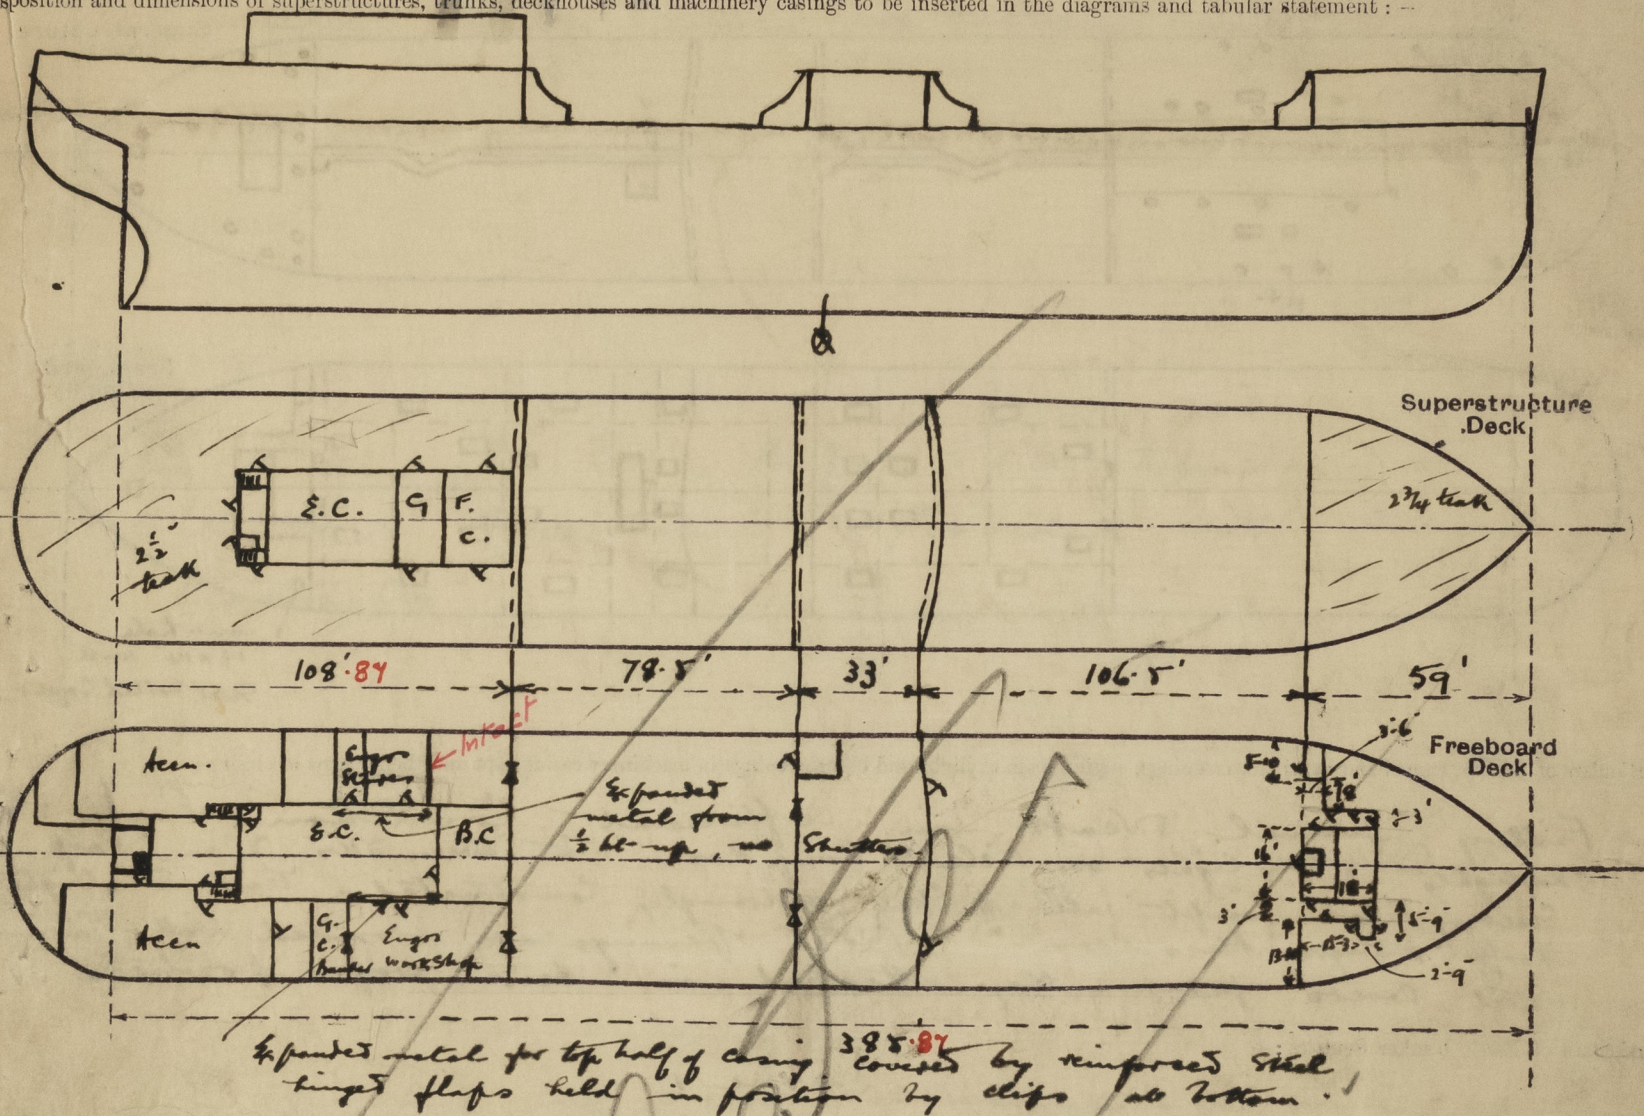 sposition and dimensions of superstructures, trunks, deckhouses and machinery casings to be inserted in the diagrams and tabular statement : —
Superstructure
Deck
2 3/4" teak
E.C.
G
F.
C.
2 1/2"
teak
108'.84
78.5'
33'
106.5'
59'
Intact
Freeboard
Deck
3'-6"
Accn.
Engrs
Stores
E.C.
B.C
Expanded
metal from
1/2 ht up, no Shutters.
16'
18'
3'
5'-9"
2'-9"
Accn
Bunker
Engrs
Workshop
385.84
Expanded metal for top half of casing covered by reinforced steel
hinged flaps held in position by clips at bottom.